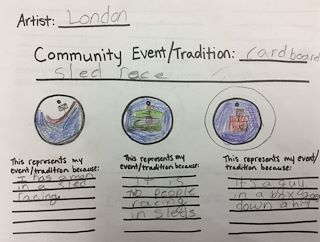 Artist: London
Community Event/Tradition: cardboard
sled race
This represents my event/tradition because:
I has a man
in a sled
racing
This represents my event/tradition because:
It is
two people
racing
in sleds
This represents my event/tradition because:
It's a guy
in a box going
down a hill